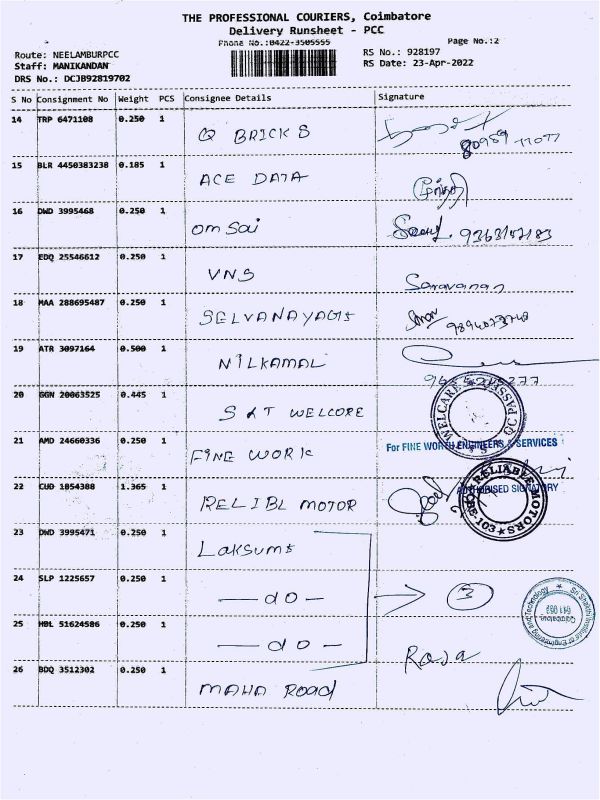 THE PROFESSIONAL COURIERS, Coimbatore
Delivery Runsheet - PCC
Phone No.:0422-3505555
Page No.:2
Route: NEELAMBURPCC
RS No.: 928197
Staff: MANIKANDAN
RS Date: 23-Apr-2022
DRS No.: DCJB92819702
S No Consignment No Weight PCS Consignee Details Signature
14 TRP 6471108 0.250 1 Q BRICKS
15 BLR 4450383238 0.185 1 ACE DATA
16 DWD 3995468 0.250 1 om Sai
17 EDQ 25546612 0.250 1 VNS Saravanan
18 MAA 288695487 0.250 1 SELVANAYAGIS
19 ATR 3097164 0.500 1 NILKAMAL
20 GGN 20063525 0.445 1 S K T WELCORE
21 AMD 24660336 0.250 1 FINE WORK
For FINE WORTH ENGINEERS & SERVICES
AUTHORISED SIGNATORY
22 CUD 1854388 1.365 1 RELIBL MOTOR
RELIABLE MOTORS
23 DWD 3995471 0.250 1 Laksums
24 SLP 1225657 0.250 1 — do — 3
25 HBL 51624586 0.250 1 — do —
Raja
26 BDQ 3512302 0.250 1 MAHA Road